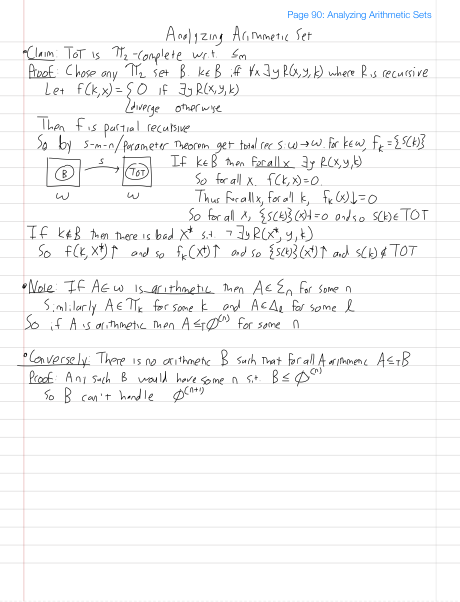 Page 90: Analyzing Arithmetic Sets
Analyzing Arithmetic Set
• Claim: TOT is Π₂-complete w.r.t. ≤m
Proof: Chose any Π₂ set B. k∈B iff ∀x∃y R(x,y,k) where R is recursive
Let f(k,x) = { 0 if ∃y R(x,y,k)
diverge otherwise
Then f is partial recursive
So by s-m-n/Parameter Theorem get total rec s: ω→ω. For k∈ω, fₖ = {s(k)}
B s TOT
ω ω
If k∈B then for all x ∃y R(x,y,k)
So for all x f(k,x)=0
Thus for all x, for all k, fₖ(x)↓=0
So for all x, {s(k)}(x)↓=0 and so s(k)∈TOT
If k∉B then there is bad x* s.t. ¬∃y R(x*, y, k)
So f(k,x*)↑ and so fₖ(x*)↑ and so {s(k)}(x*)↑ and s(k)∉TOT
• Note: If A∈ω is arithmetic then A∈Σₙ for some n
Similarly A∈Πₖ for some k and A∈Δₗ for some l
So if A is arithmetic then A≤T Ø⁽ⁿ⁾ for some n
• Conversely: There is no arithmetic B such that for all A arithmetic A≤T B
Proof: Any such B would have some n s.t. B≤ Ø⁽ⁿ⁾
So B can't handle Ø⁽ⁿ⁺¹⁾